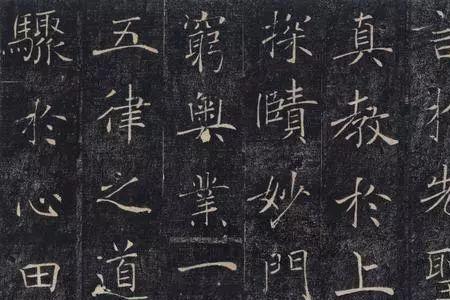 言於先聖
真教於上
探賾妙門
窮奧業一
五律之道
驟於心田